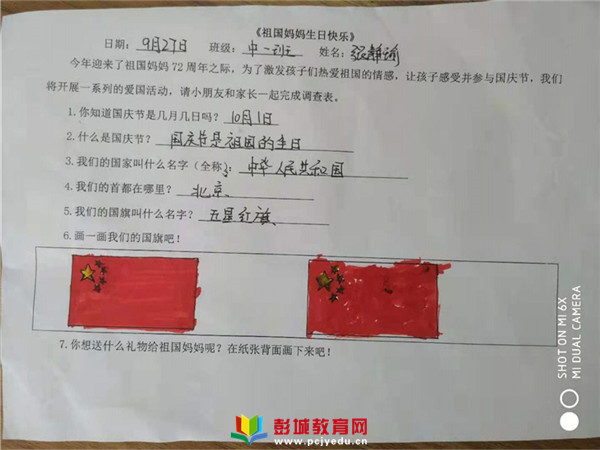 《祖国妈妈生日快乐》
日期：9月27日 班级：中一班 姓名：张静瑜
今年迎来了祖国妈妈 72 周年之际，为了激发孩子们热爱祖国的情感，让孩子感受并参与国庆节，我们
将开展一系列的爱国活动，请小朋友和家长一起完成调查表。
1.你知道国庆节是几月几日吗？ 10月1日
2.什么是国庆节？ 国庆节是祖国的生日
3.我们的国家叫什么名字（全称）： 中华人民共和国
4.我们的首都在哪里？ 北京
5.我们的国旗叫什么名字？ 五星红旗
6.画一画我们的国旗吧！
7.你想送什么礼物给祖国妈妈呢？在纸张背面画下来吧！
SHOT ON MI 6X
MI DUAL CAMERA
彭城教育网
www.pcjyedu.cn